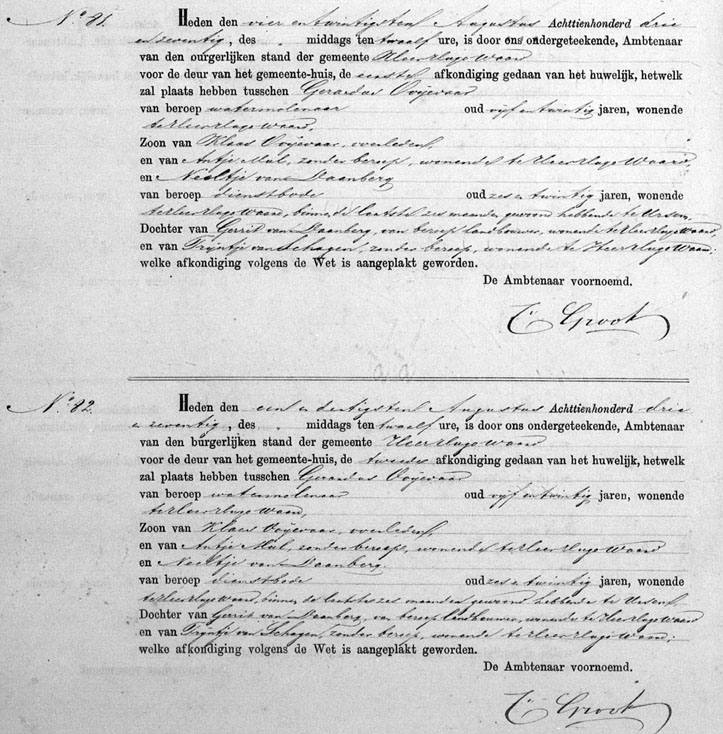 No. 81. Heden den vier en twintigsten Augustus Achttienhonderd drie
en zeventig, des . middags ten twaalf ure, is door ons ondergeteekende, Ambtenaar
van den burgerlijken stand der gemeente Heer Hugo Waard
voor de deur van het gemeente-huis, de eerste afkondiging gedaan van het huwelijk, hetwelk
zal plaats hebben tusschen Gerardus Ooijevaar
van beroep watermolenaar oud vijf en twintig jaren, wonende
te Heer Hugo Waard,
Zoon van Klaas Ooijevaar, overleden,
en van Antje Mul, zonder beroep, wonende te Heer Hugo Waard
en Neeltje van Daanberg
van beroep dienstbode oud zes en twintig jaren, wonende
te Heer Hugo Waard, binnen de laatste zes maanden gewoond hebbende te Ursem,
Dochter van Gerrit van Daanberg, van beroep landbouwer, wonende te Heer Hugo Waard
en van Trijntje van Schagen, zonder beroep, wonende te Heer Hugo Waard;
welke afkondiging volgens de Wet is aangeplakt geworden.
De Ambtenaar voornoemd.
C. Groot
No. 82. Heden den een en dertigsten Augustus Achttienhonderd drie
en zeventig, des . middags ten twaalf ure, is door ons ondergeteekende, Ambtenaar
van den burgerlijken stand der gemeente Heer Hugo Waard
voor de deur van het gemeente-huis, de tweede afkondiging gedaan van het huwelijk, hetwelk
zal plaats hebben tusschen Gerardus Ooijevaar
van beroep watermolenaar oud vijf en twintig jaren, wonende
te Heer Hugo Waard,
Zoon van Klaas Ooijevaar, overleden,
en van Antje Mul, zonder beroep, wonende te Heer Hugo Waard
en Neeltje van Daanberg
van beroep dienstbode oud zes en twintig jaren, wonende
te Heer Hugo Waard, binnen de laatste zes maanden gewoond hebbende te Ursem,
Dochter van Gerrit van Daanberg, van beroep landbouwer, wonende te Heer Hugo Waard
en van Trijntje van Schagen, zonder beroep, wonende te Heer Hugo Waard;
welke afkondiging volgens de Wet is aangeplakt geworden.
De Ambtenaar voornoemd.
C. Groot